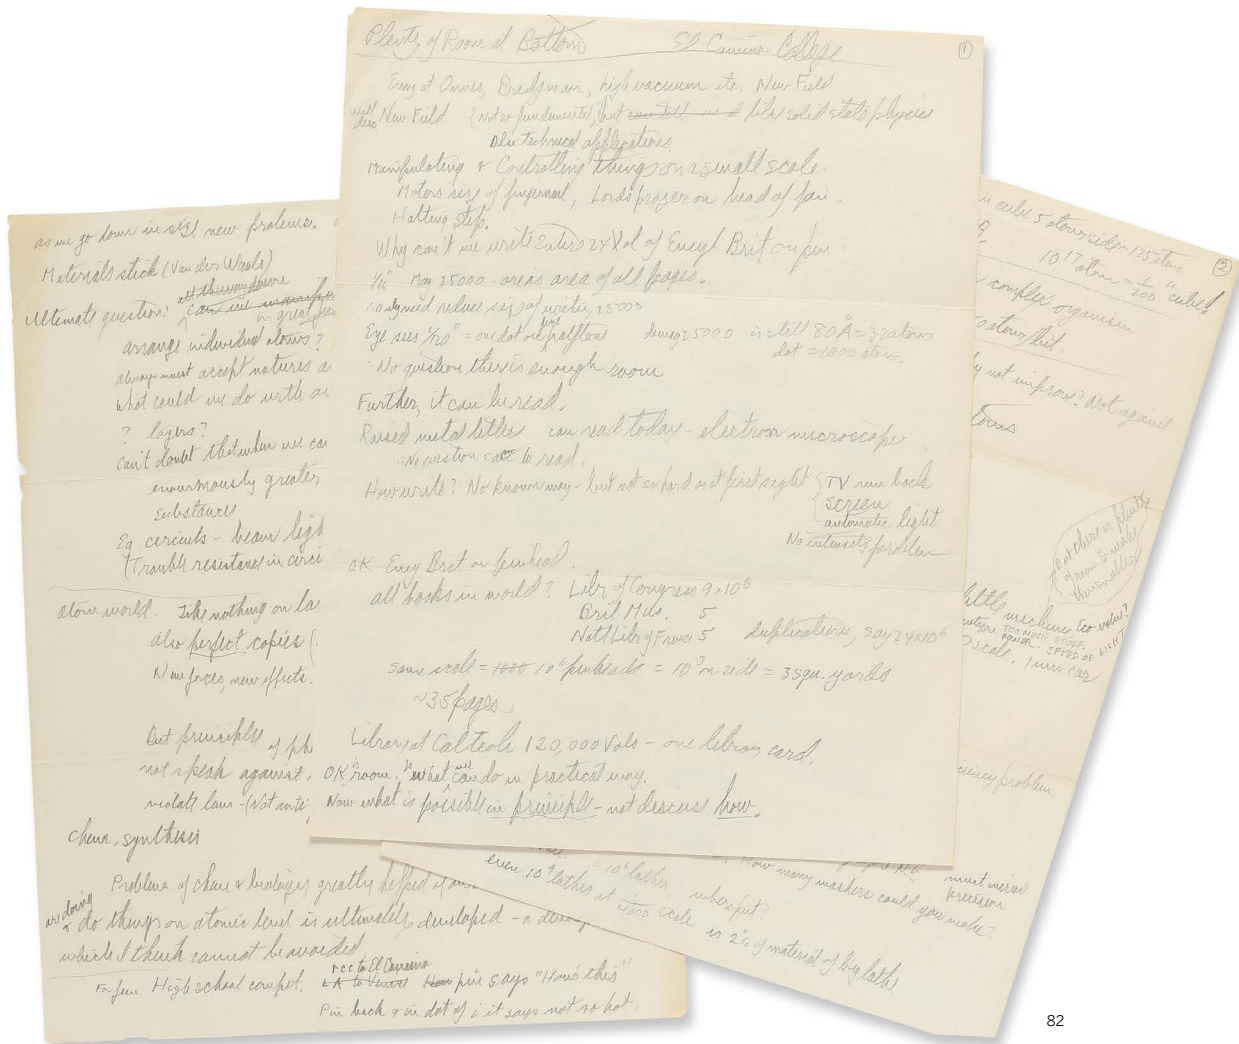 Plenty of Room at Bottom El Camino College 1
Envy at Onnes, Bridgman, high vacuum etc. New Field
Will desc New Field (Not so fundamental, but like solid state physics
Also technical applications.
Manipulating & Controlling things on a small scale.
Motors size of fingernail, Lords prayer on head of pin.
Halting step.
Why can't we write Entire 24 Vol of Encyl Brit on pin.
1/16" Mag 25000 - area is area of all pages.
∴ only need reduce size of writing 25000
Eye sees 1/120" = one dot on fine halftone demag 25000 is still 80 Å = 32 atoms
dot = 1000 atoms.
∴ No question there is enough room
Further, it can be read.
Raised metal letters can read today - electron microscope
∴ No question can be read.
How write? No known way - but not so hard as at first sight { TV run back
screen
automatic light
No intensity problem
OK Ency Brit on pinhead.
all books in world? Libr of Congress 9×10^6
Brit Mus. 5
Nat'l Libr of France 5 duplications, say 24×10^6
Same scale = 10^6 pinheads = 10^3 on side = 3 squ. yards
~35 pages
Library at Caltech 120,000 Vols - one library card.
OK room. Is what we can do in practical way.
Now what is possible in principle - not discuss how.
as we go down in size new problems.
Materials stick (Van der Waals)
Ultimate question: all the way down
in great future
arrange individual atoms?
always must accept natures
What could we do with
? layers?
Can't doubt that when we can
enourmously greater
substances
Eg circuits - beam light
(Trouble resistance in circui
atom world. Like nothing on la
Also perfect copies (
New forces, new effects.
But principles of ph
not speak against.
violate laws - (Not anti-
Chem. synthesis
Problems of chem & biology greatly helped if
are doing
& do things on atomic level is ultimately developed - a
which I think cannot be avoided
For fun High school compet. PCC to El Camino LA to Venice pin says "How's this"
Pin back & in dot of i it says not so hot.
2
in cube 5 atoms side = 125 atoms
10^17 atoms = 1/200" cubed.
complex organism
50 atoms / bit.
y not improve? Not against
toms
But there is plenty of room to make them smaller
little machines Eco value?
TOO MUCH STUFF.
POWER. SPEED OF LIGHT
scale, 1 mm car
ciency problem
must increase
precision
How many masters could you make?
10^6 lathes where put?
even 10^9 lathes at 1/4000 scale is 2% of material of big lathe
82